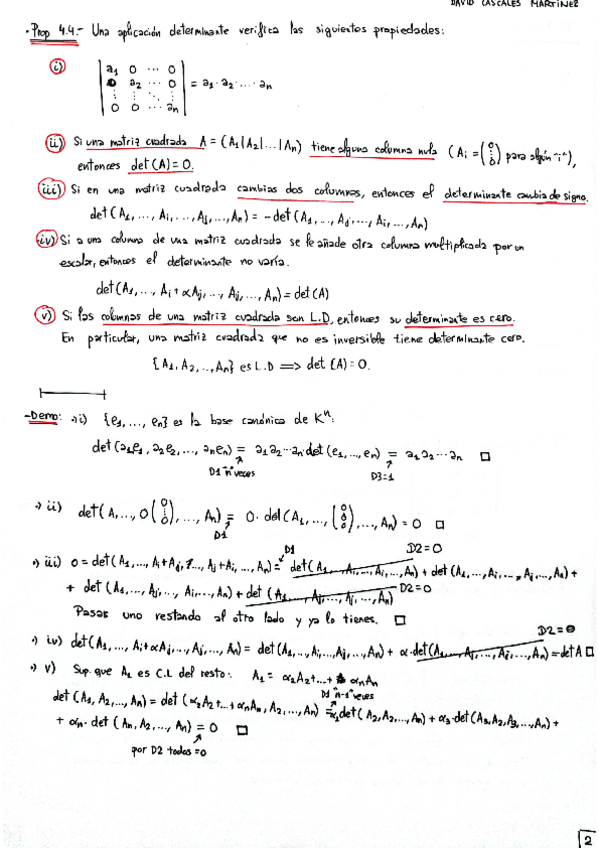 DAVID CASCALES MARTÍNEZ
· Prop 4.4.- Una aplicación determinante verifica las siguientes propiedades:
i) | a1 0 ... 0 |
| 0 a2 ... 0 | = a1 · a2 · ... · an
| ⋮ ⋮ ⋱ ⋮ |
| 0 0 ... an |
ii) Si una matriz cuadrada A = (A1|A2|...|An) tiene alguna columna nula (Ai = (0 ⋮ 0) para algún "i"),
entonces det(A) = 0.
iii) Si en una matriz cuadrada cambias dos columnas, entonces el determinante cambia de signo.
det(A1, ..., Ai, ..., Aj, ..., An) = -det(A1, ..., Aj, ..., Ai, ..., An)
iv) Si a una columna de una matriz cuadrada se le añade otra columna multiplicada por un
escalar, entonces el determinante no varía.
det(A1, ..., Ai + αAj, ..., Aj, ..., An) = det(A)
v) Si las columnas de una matriz cuadrada son L.D, entonces su determinante es cero.
En particular, una matriz cuadrada que no es inversible tiene determinante cero.
{A1, A2, ..., An} es L.D ⟹ det(A) = 0.
- Demo: ·) i) {e1, ..., en} es la base canónica de K^n:
det(a1e1, a2e2, ..., anen) = a1a2...an·det(e1, ..., en) = a1a2...an □
D1 "n" veces D3=1
·) ii) det(A, ..., 0(0 ⋮ 0), ..., An) = 0 · det(A1, ..., (0 0 0), ..., An) = 0 □
D1
D1 D2=0
·) iii) 0 = det(A1, ..., Ai+Aj, ..., Aj+Ai, ..., An) = det(A1, ..., Ai, ..., Ai, ..., An) + det(A1, ..., Ai, ..., Aj, ..., An) +
+ det(A1, ..., Aj, ..., Ai, ..., An) + det(A1, ..., Aj, ..., Aj, ..., An) D2=0
Pasas uno restando al otro lado y ya lo tienes. □
D2=0
·) iv) det(A1, ..., Ai+αAj, ..., Aj, ..., An) = det(A1, ..., Ai, ..., Aj, ..., An) + α·det(A1, ..., Aj, ..., Aj, ..., An) = det A □
·) v) Sup. que A1 es C.L del resto: A1 = α2A2 + ... + αnAn
D1 "n-1" veces
det(A1, A2, ..., An) = det(α2A2 + ... + αnAn, A2, ..., An) = α2 det(A2, A2, ..., An) + α3·det(A3, A2, A3, ..., An) +
+ αn · det(An, A2, ..., An) = 0 □
por D2 todos = 0
2